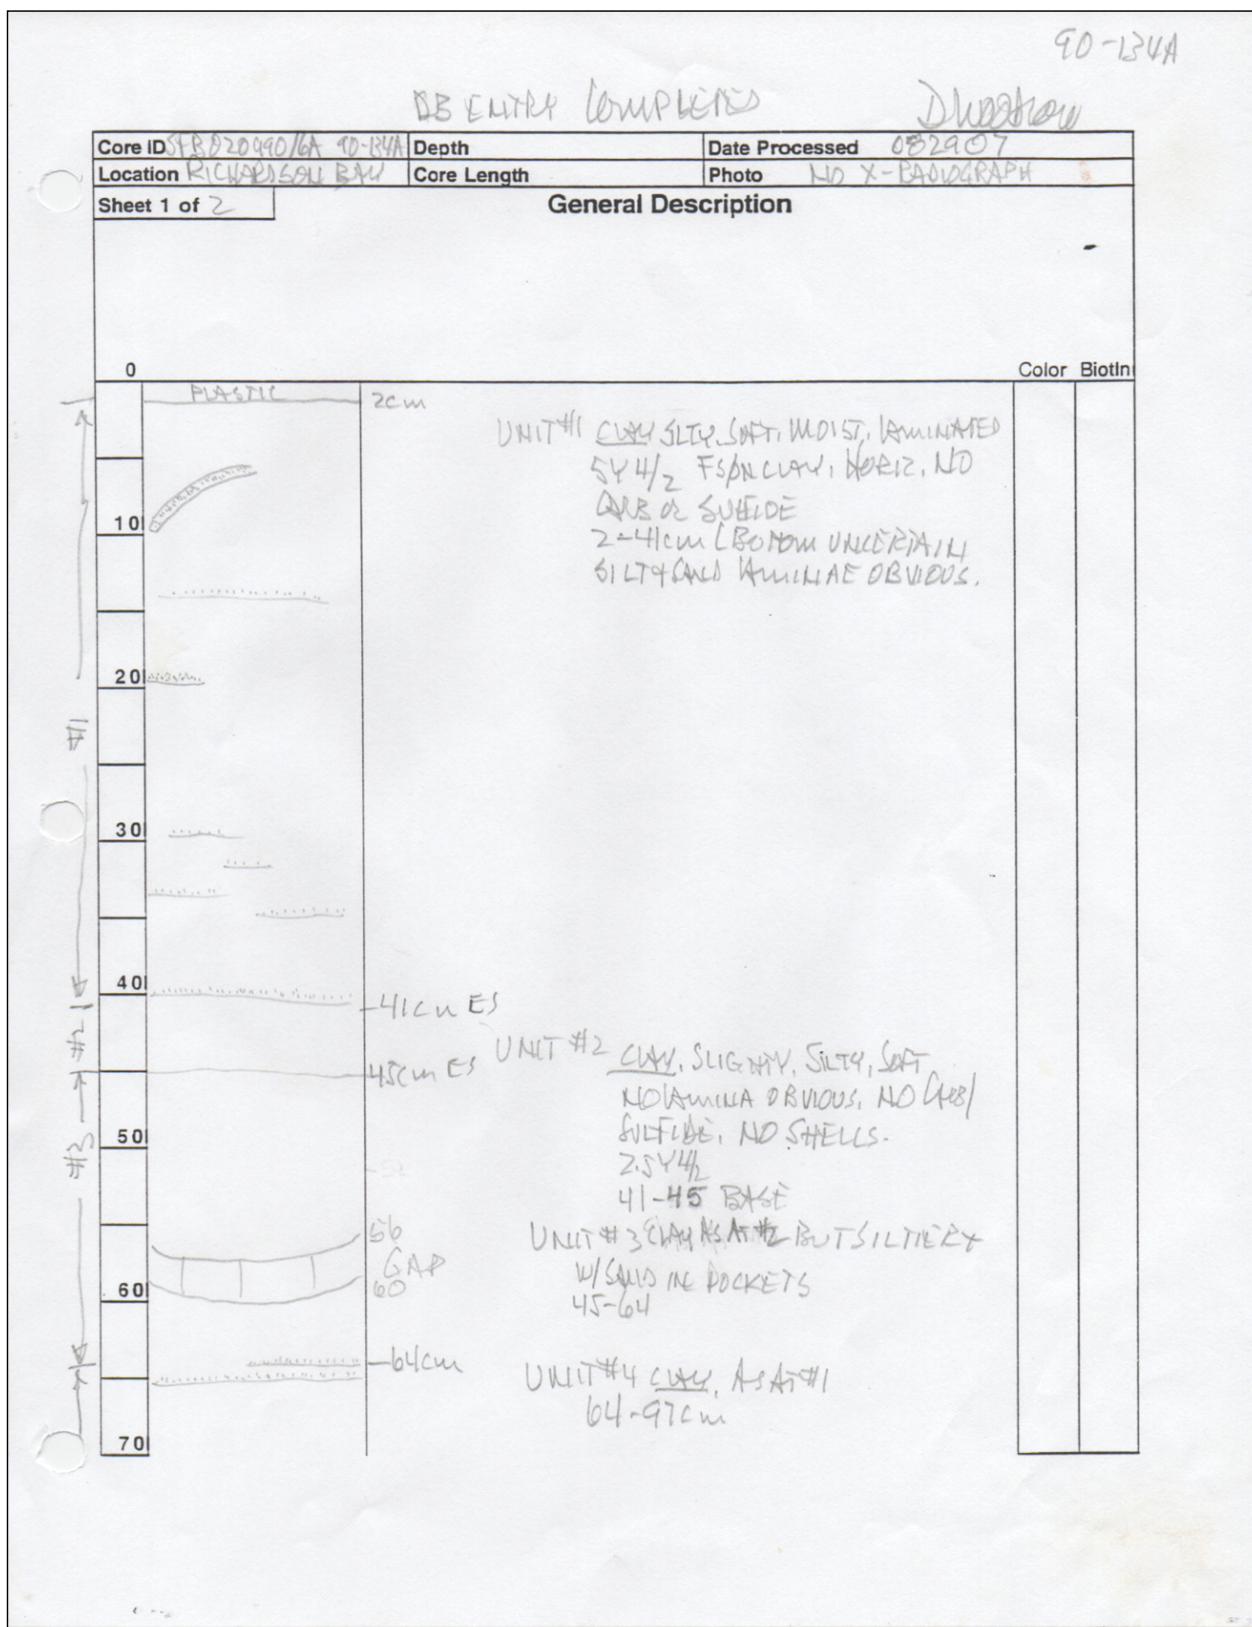 90-134A
DB ENTRY COMPLETED
Core ID 90-134A Depth Date Processed 082907
Location RICHARDSON BAY Core Length Photo NO X-RADIOGRAPH
Sheet 1 of 2 General Description
0 Color BiotIn
PLASTIC 2cm
UNIT #1 CLAY SLTY, SOFT, MOIST, LAMINATED
5Y 4/2 CLAY, HORIZ, NO
CARB OR SULFIDE
10
2-41cm (BOTTOM UNCERTAIN
SILT & SAND LAMINAE OBVIOUS.
20
#1
30
40
-41cm ES
#2
UNIT #2 CLAY, SLIGHTY, SILTY, SOFT
45cm ES
NO LAMINA OBVIOUS, NO CARB/
SULFIDE, NO SHELLS.
50
#3
2.5Y 4/2
41-45 BASE
56
UNIT #3 CLAY AS AT #2 BUT SILTIER &
GAP
W/SAND IN POCKETS
60
60
45-64
-64cm
UNIT #4 CLAY, AS AT #1
64-97cm
70